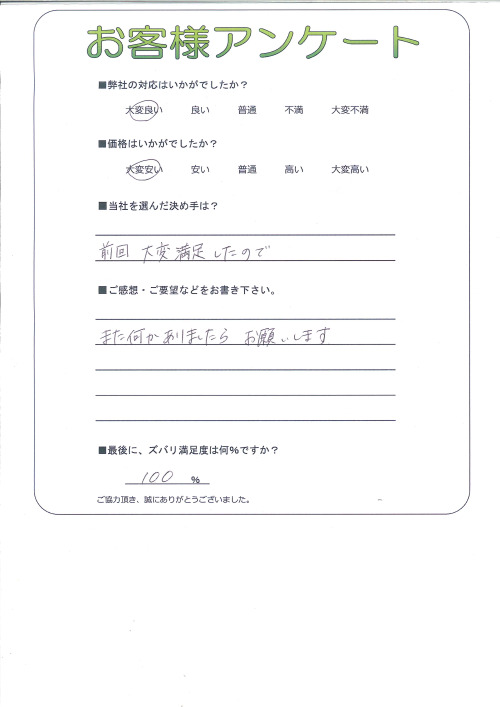 お客様アンケート
■弊社の対応はいかがでしたか？
大変良い 良い 普通 不満 大変不満
■価格はいかがでしたか？
大変安い 安い 普通 高い 大変高い
■当社を選んだ決め手は？
前回 大変満足したので
■ご感想・ご要望などをお書き下さい。
また何かありましたら お願いします
■最後に、ズバリ満足度は何%ですか？
100 %
ご協力頂き、誠にありがとうございました。